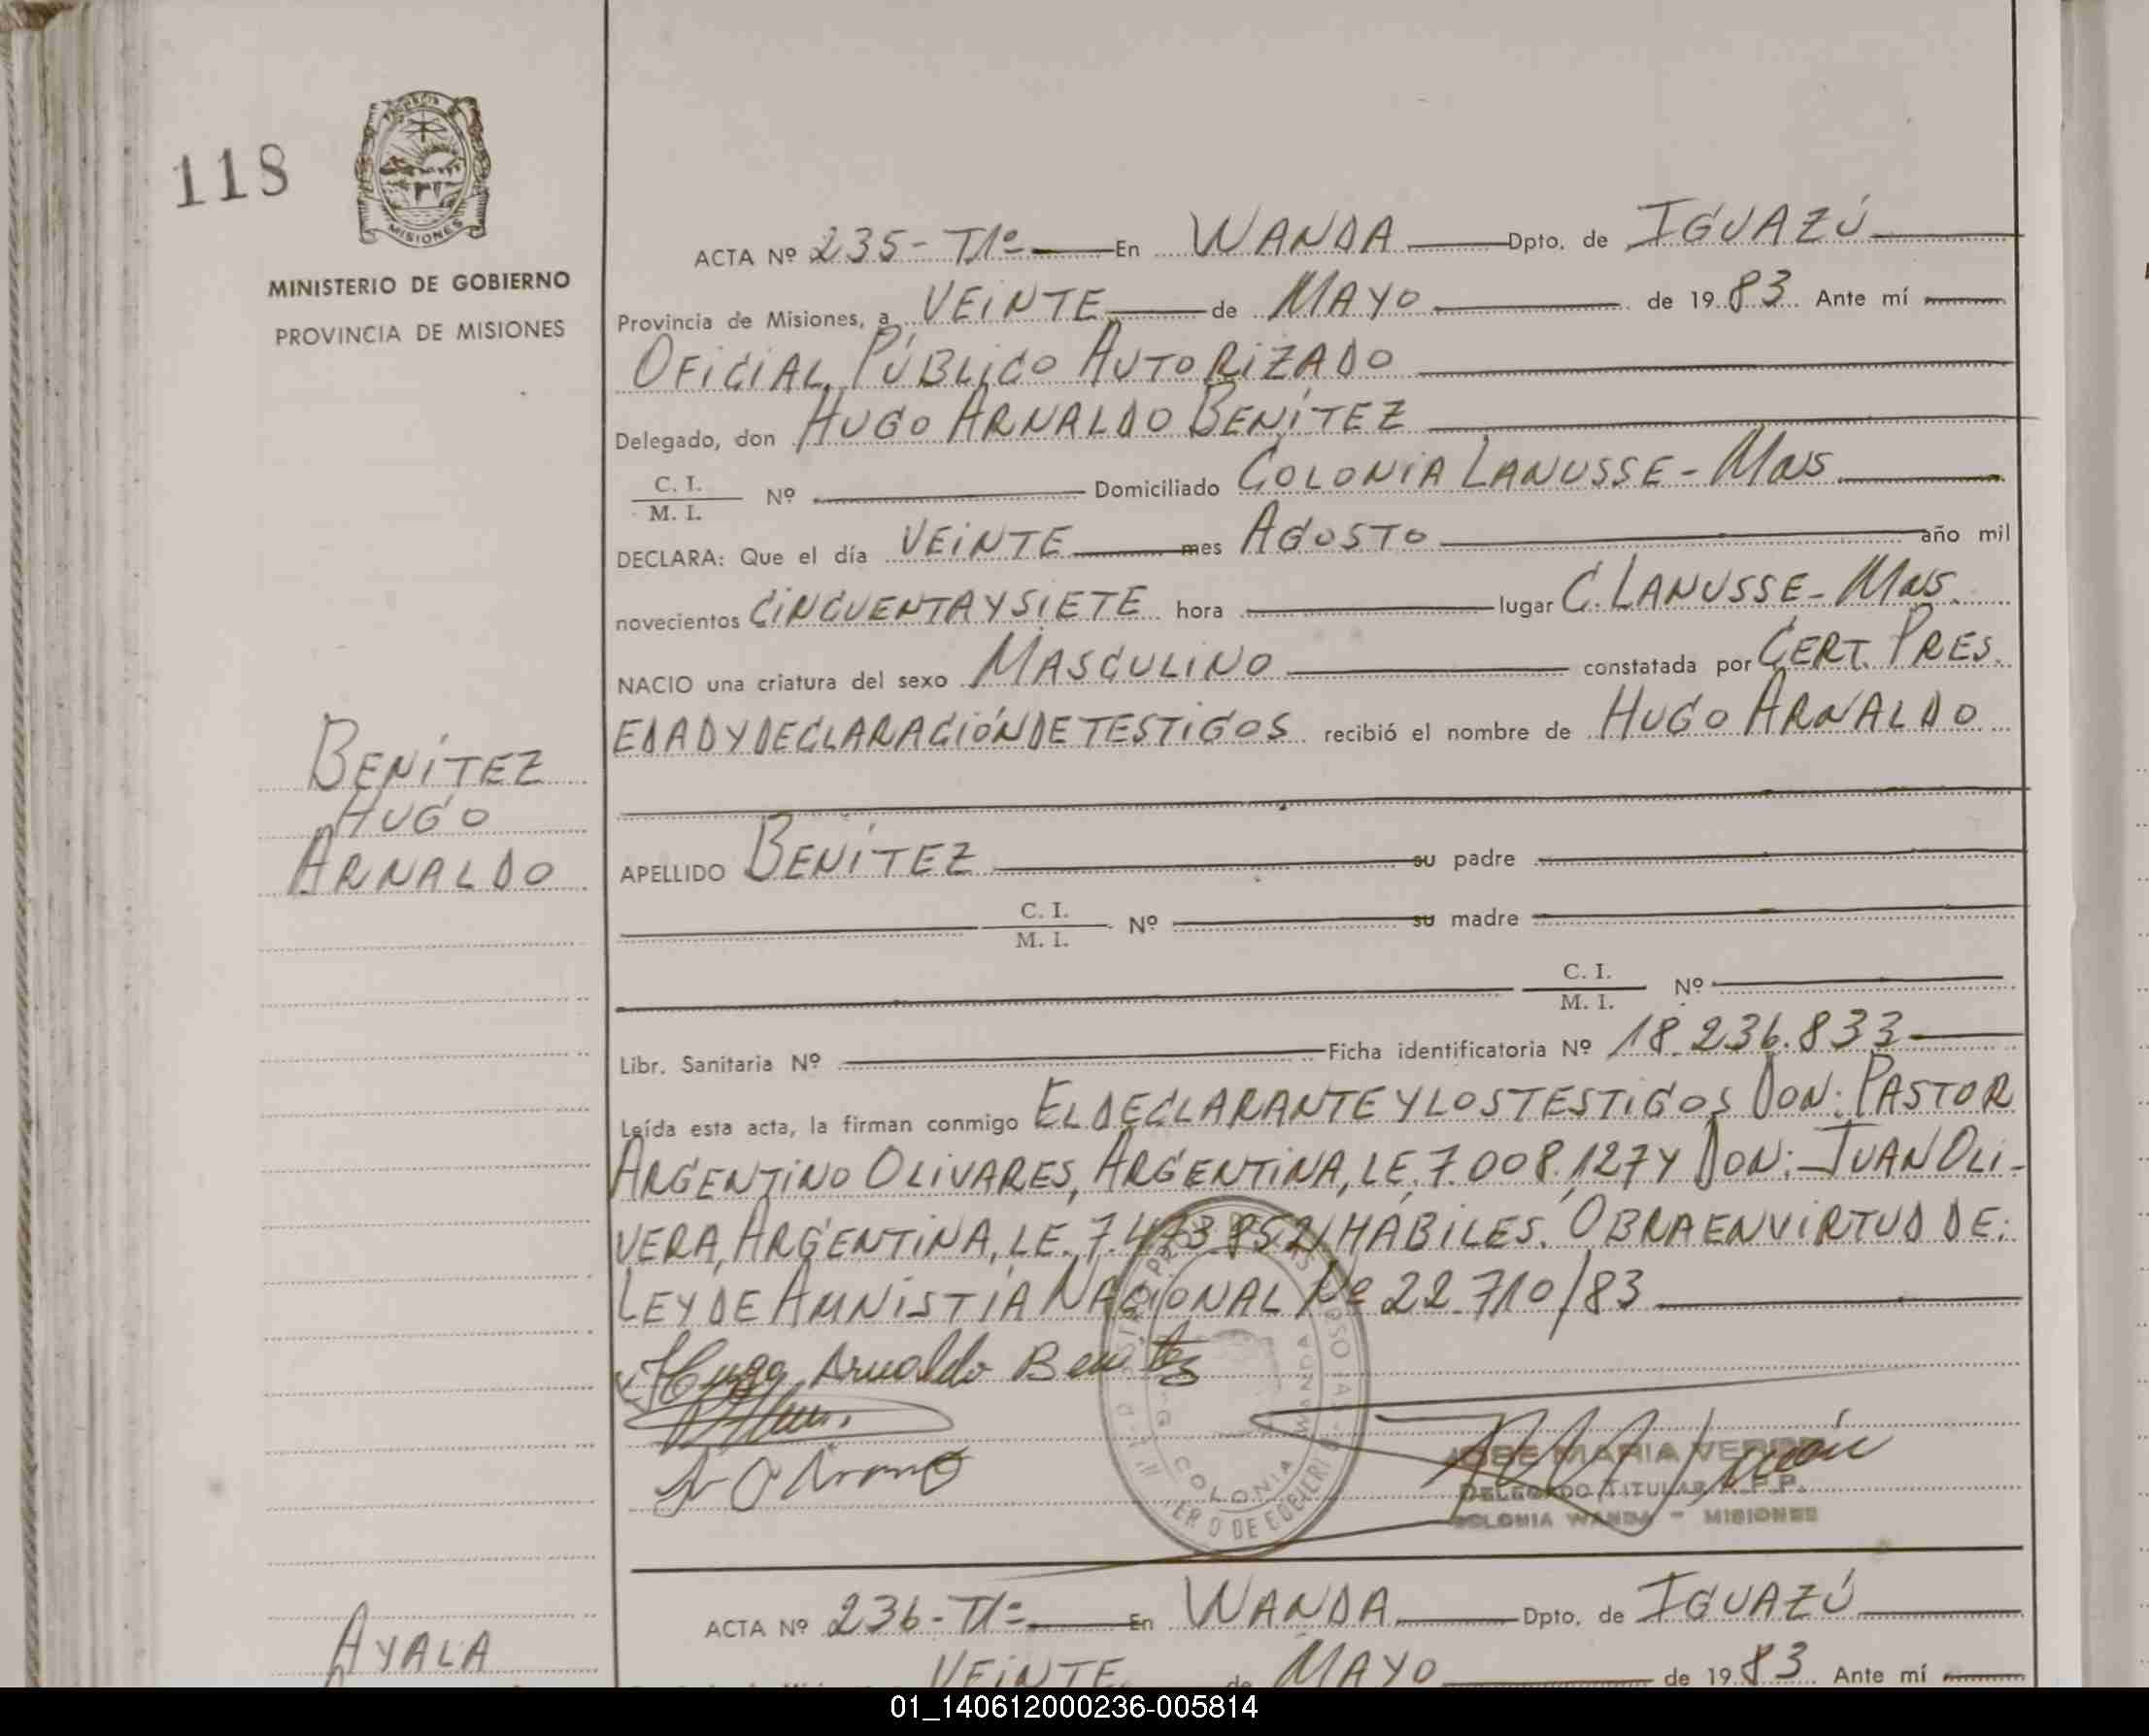 118
MISIONES
MINISTERIO DE GOBIERNO
PROVINCIA DE MISIONES
BENÍTEZ
HUGO
ARNALDO
ACTA Nº 235-T1º En WANDA Dpto. de IGUAZÚ
Provincia de Misiones, a VEINTE de MAYO de 1983 Ante mí
OFICIAL PÚBLICO AUTORIZADO
Delegado, don HUGO ARNALDO BENÍTEZ
C. I. / M. I. Nº Domiciliado COLONIA LANUSSE - Mns
DECLARA: Que el día VEINTE mes AGOSTO año mil
novecientos CINCUENTA Y SIETE hora lugar C. LANUSSE - Mns.
NACIO una criatura del sexo MASCULINO constatada por CERT. PRES.
EDAD Y DECLARACIÓN DE TESTIGOS recibió el nombre de HUGO ARNALDO
APELLIDO BENÍTEZ su padre
C. I. / M. I. Nº su madre
C. I. / M. I. Nº
Libr. Sanitaria Nº Ficha identificatoria Nº 18.236.833
Leída esta acta, la firman conmigo EL DECLARANTE Y LOS TESTIGOS DON: PASTOR
ARGENTINO OLIVARES, ARGENTINA, LE. 7.008.127 Y DON: JUAN OLI-
VERA, ARGENTINA, LE. 7.473.852, HÁBILES. OBRA EN VIRTUD DE:
LEY DE AMNISTÍA NACIONAL Nº 22.710/83
Hugo Arnaldo Benitez
COLONIA WANDA
JOSE MARIA
DELEGADO TITULAR R.P.P.
COLONIA WANDA - MISIONES
AYALA
ACTA Nº 236-T1º En WANDA Dpto. de IGUAZÚ
VEINTE de MAYO de 1983 Ante mí
01_140612000236-005814